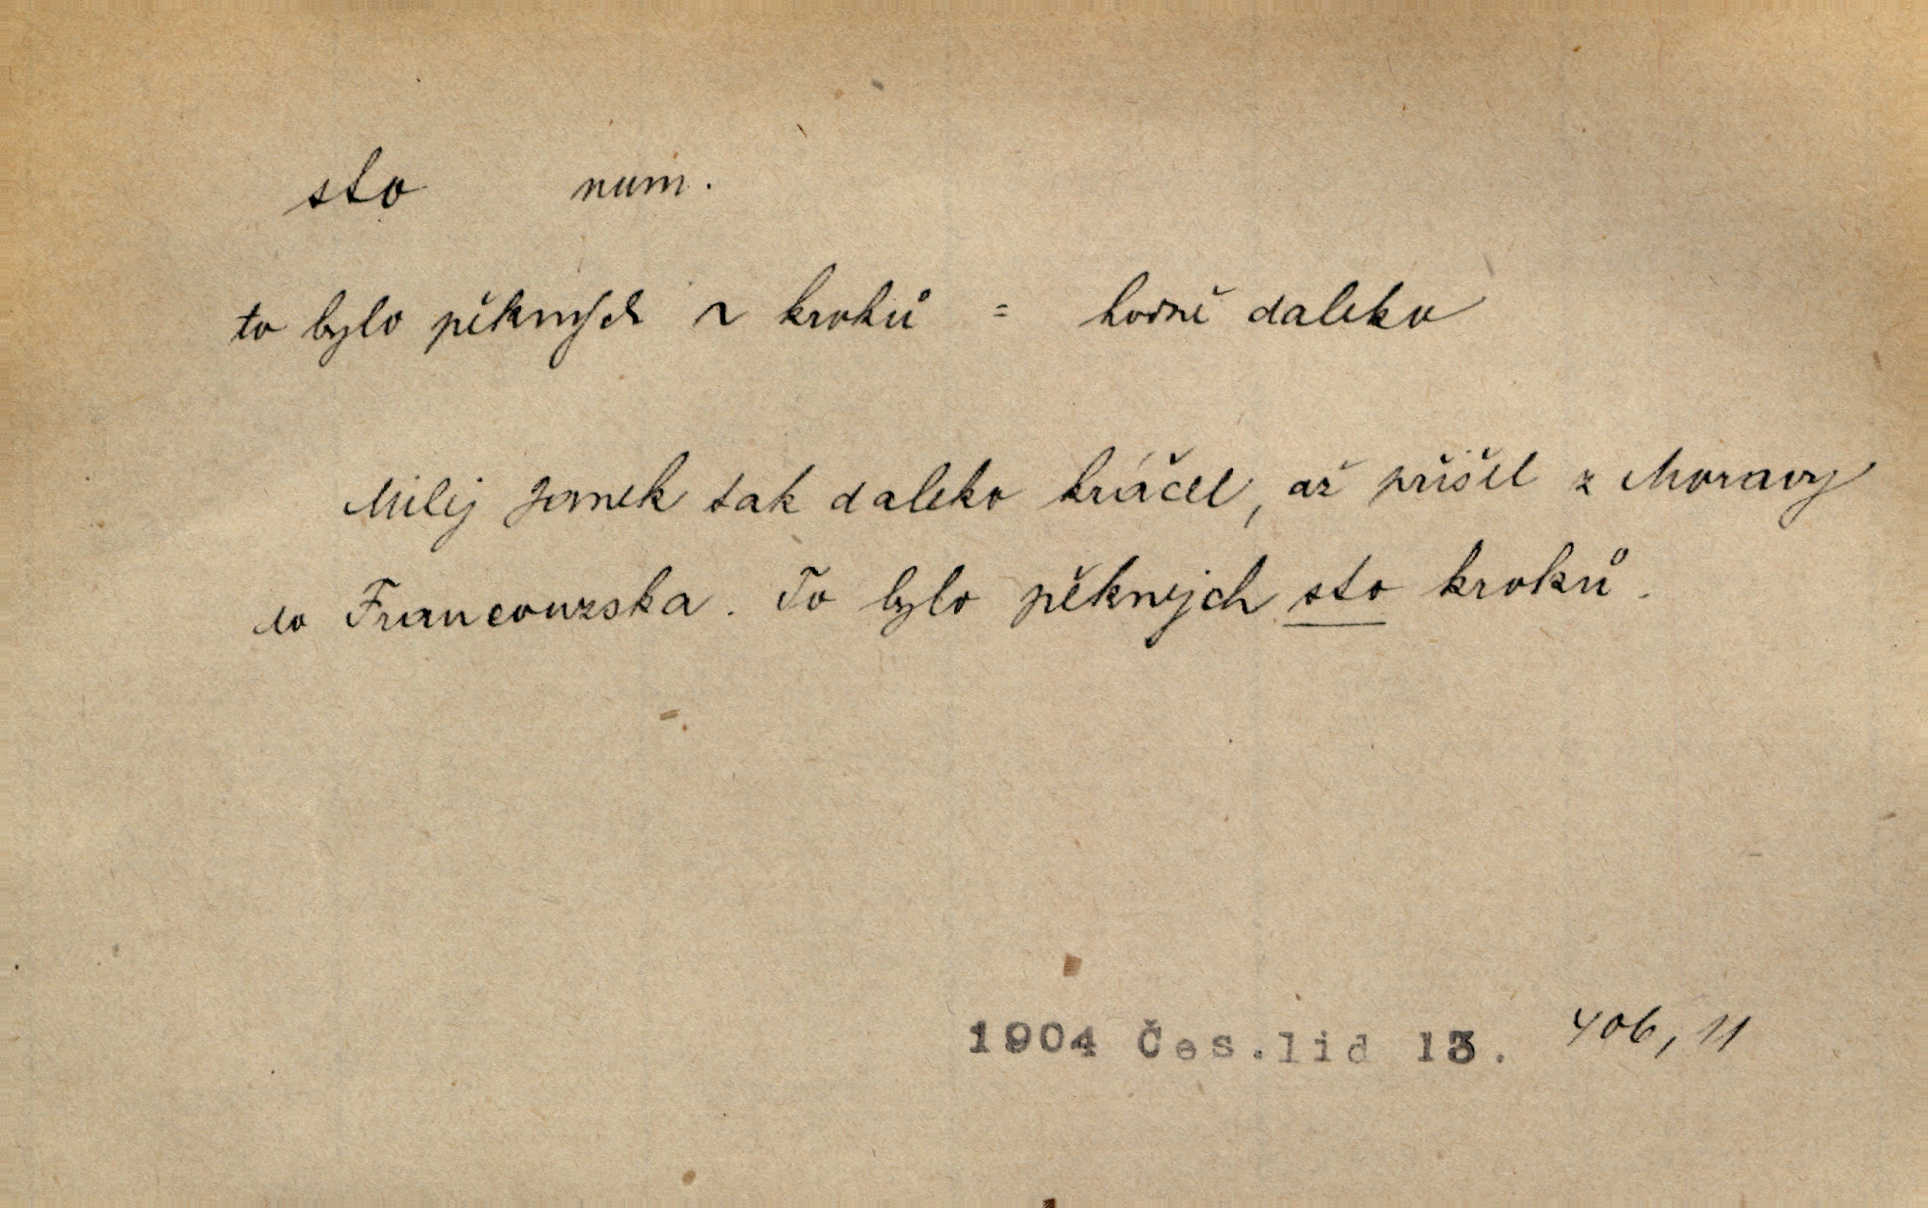 sto num.
to bylo pěkných ~ kroků = hodně daleko
Milej Janek tak daleko kráčel, až přišel z Moravy
do Francouzska. To bylo pěknejch sto kroků.
1904 Čes.lid 13. 406, 11